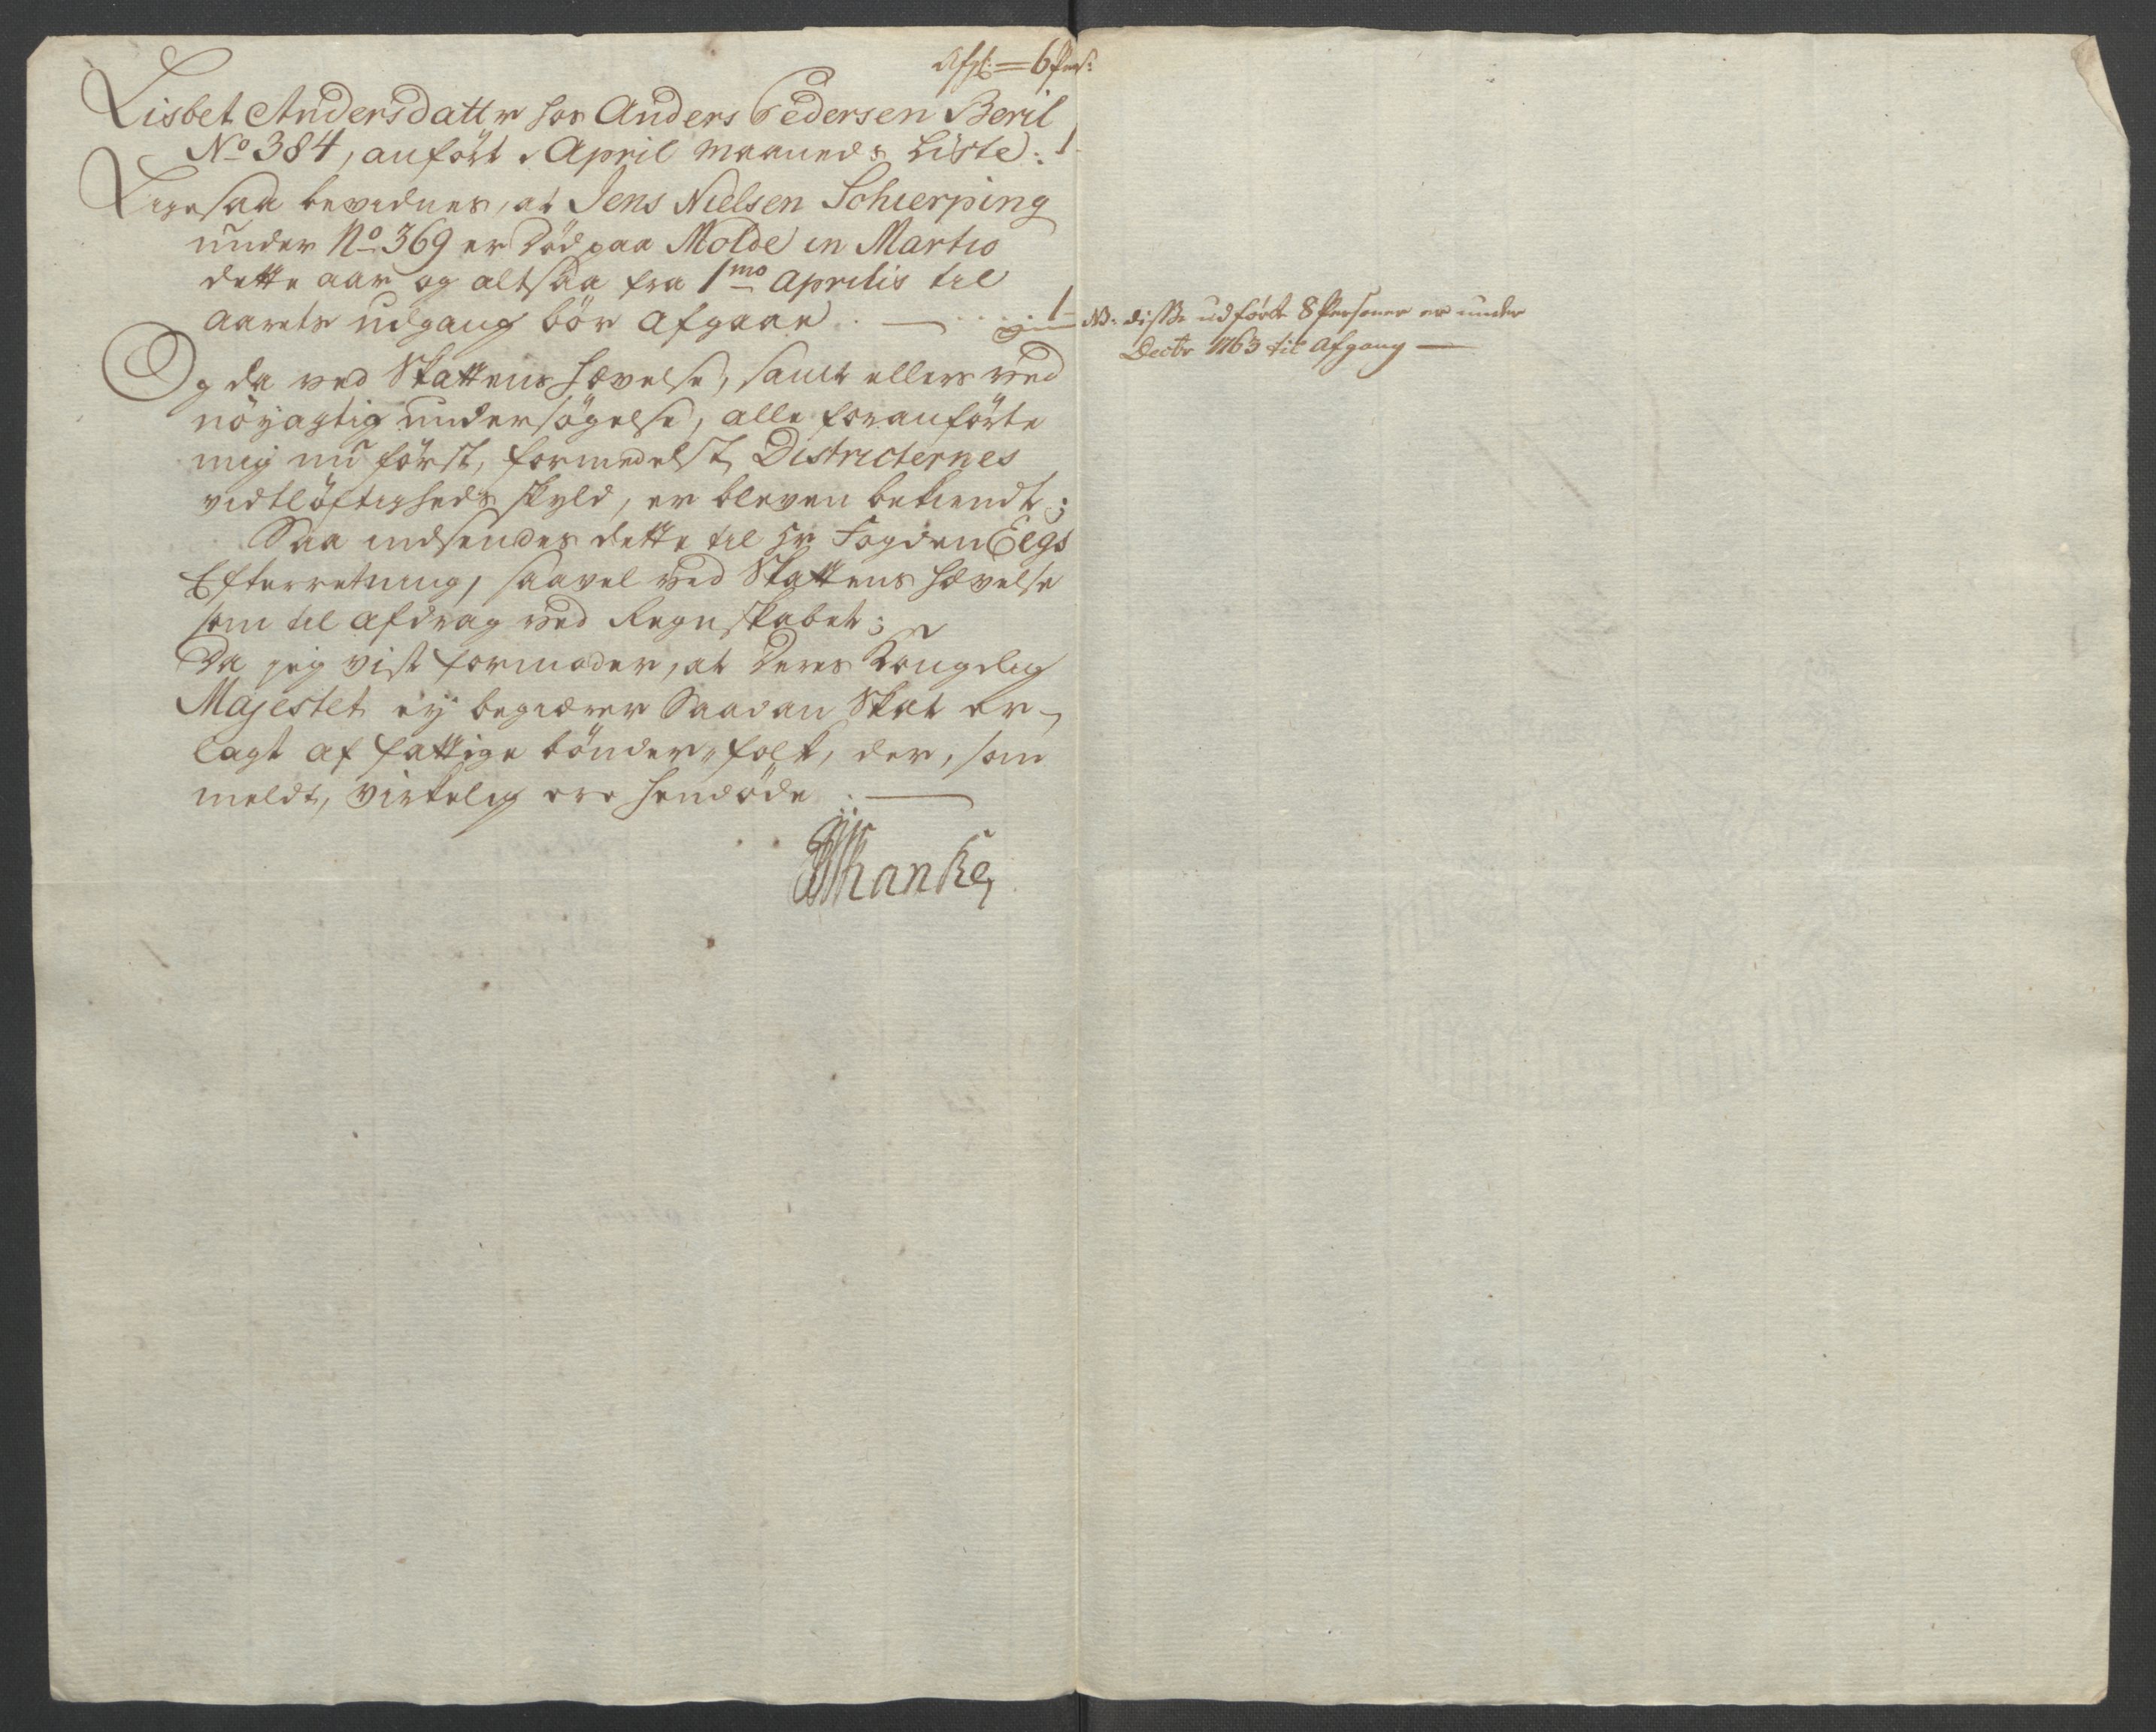 6 Pers:
Lisbet Andersdatter hos Anders Pedersen Beril
No 384, anført i April Maaneds Liste: 1
Ligesaa bevidnes, at Jens Nielsen Schierping
under No 369 er død paa Molde in Martio
dette aar og altsaa fra 1mo Aprilis til
Aarets udgang bör afgaae . — 1
Og da ved Skattens Hævelse, samt ellers ved
nöyagtig undersögelse, alle foranförte
mig nu först, formedelst Districternes
vidtlöftigheds skyld, er bleven bekiendt;
Saa indsendes dette til Hr Fogden Eegs
Efterretning, saavel ved Skattens Hævelse
som til afdrag ved Regnskabet;
Da jeg vist formoder, at Deres Kongelig
Majestet ey begiærer Saadan Skat er-
lagt af fattige bönder-folk, der, som
meldt, virkelig ere hendöde . —
Schanke
NB. disse udförte 8 Personer er under
Decbr 1763 til Afgang —